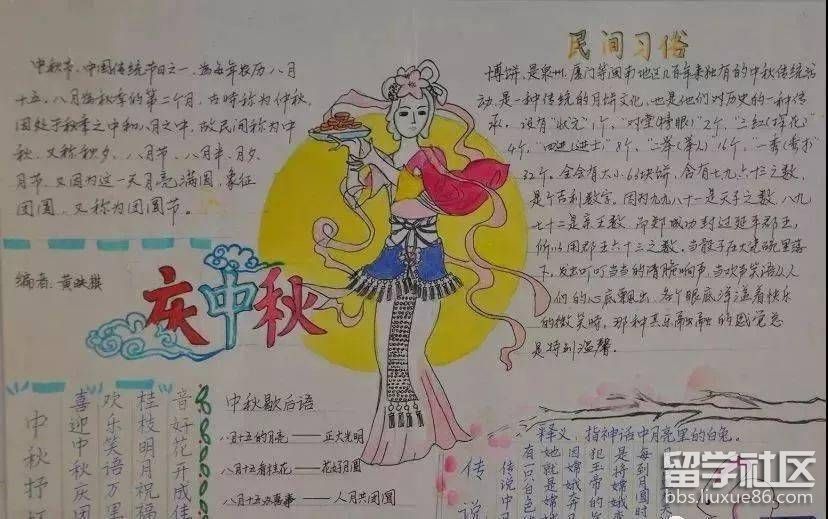 中秋节、中国传统节日之一、为每年农历八月
十五。八月为秋季的第二个月，古时称为仲秋，
因处于秋季之中和八月之中，故民间称为中
秋、又称秋夕、八月节、八月半、月夕、
月节、又因为这一天月亮满圆，象征
团圆、又称为团圆节。
编者：黄
庆中秋
民间习俗
博饼，是泉州、厦门等闽南地区几百年来独有的中秋传统活
动，是一种传统的月饼文化，也是他们对历史的一种传
承。设有"状元"1个，"对堂(榜眼)"2个，"三红(探花)"
4个，"四进(进士)"8个，"二举(举人)"16个，一秀(秀才)
32个。全会有大小63块饼，含有七九六十三之数，
是个吉利数字。因为九九八十一是天子之数，八九
七十二是亲王数，郑成功封过延平郡王，
所以用郡王六十三之数。当骰子在大瓷碗里落
下，发出叮叮当当的清脆响声，当欢声笑语从人
们的心底飘出，各个眼底洋溢着快乐
的微笑时，那种其乐融融的感觉总
是特别温馨。
中秋歇后语
八月十五的月亮——正大光明
八月十五看桂花——花好月圆
八月十五办喜事——人月共团圆
音好花开成佳
桂枝明月祝福
欢乐笑语万里
喜迎中秋庆团
中秋抒
释义，指神话中月亮里的白兔。
每到月圆时
是将嫦娥
犯玉帝的
因嫦娥奔月
她就是嫦
有一只白色
传说中月
传说
留学社区
bbs.liuxue86.com